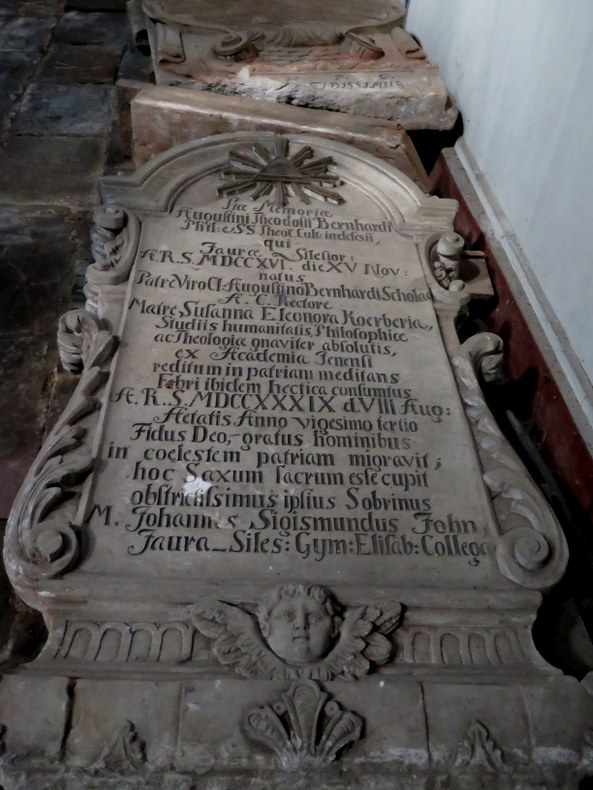 Piae Memoriae
Augustini Theodosii Bernhardi
Phil: et SS Theol: Cult: indefessi,
qui
Jaurae Silesior:
A.R.S. MDCCXVI. die XV Nov:
natus
Patre Viro Cl: Augustino Bernhardi Scholae
A. C. Rectore
Matre Susanna Eleonora Koerberia,
Studiis humanitatis Philosophiae
ac Theologiae gnaviter absolutis,
ex Academia Jenensi
reditum in patriam meditans
Febri ibidem hectica consumtus
A.R.S. MDCCXXXIX d. VIII Aug:
Aetatis Anno vigesimo tertio
Fidus Deo, gratus hominibus
in coelestem patriam migravit;
hoc Saxum sacrum este cupit
obstrictissimus ipsius Sobrinus
M. Johannes Sigismundus John,
Jaura-Siles: Gym: Elisab: Collega